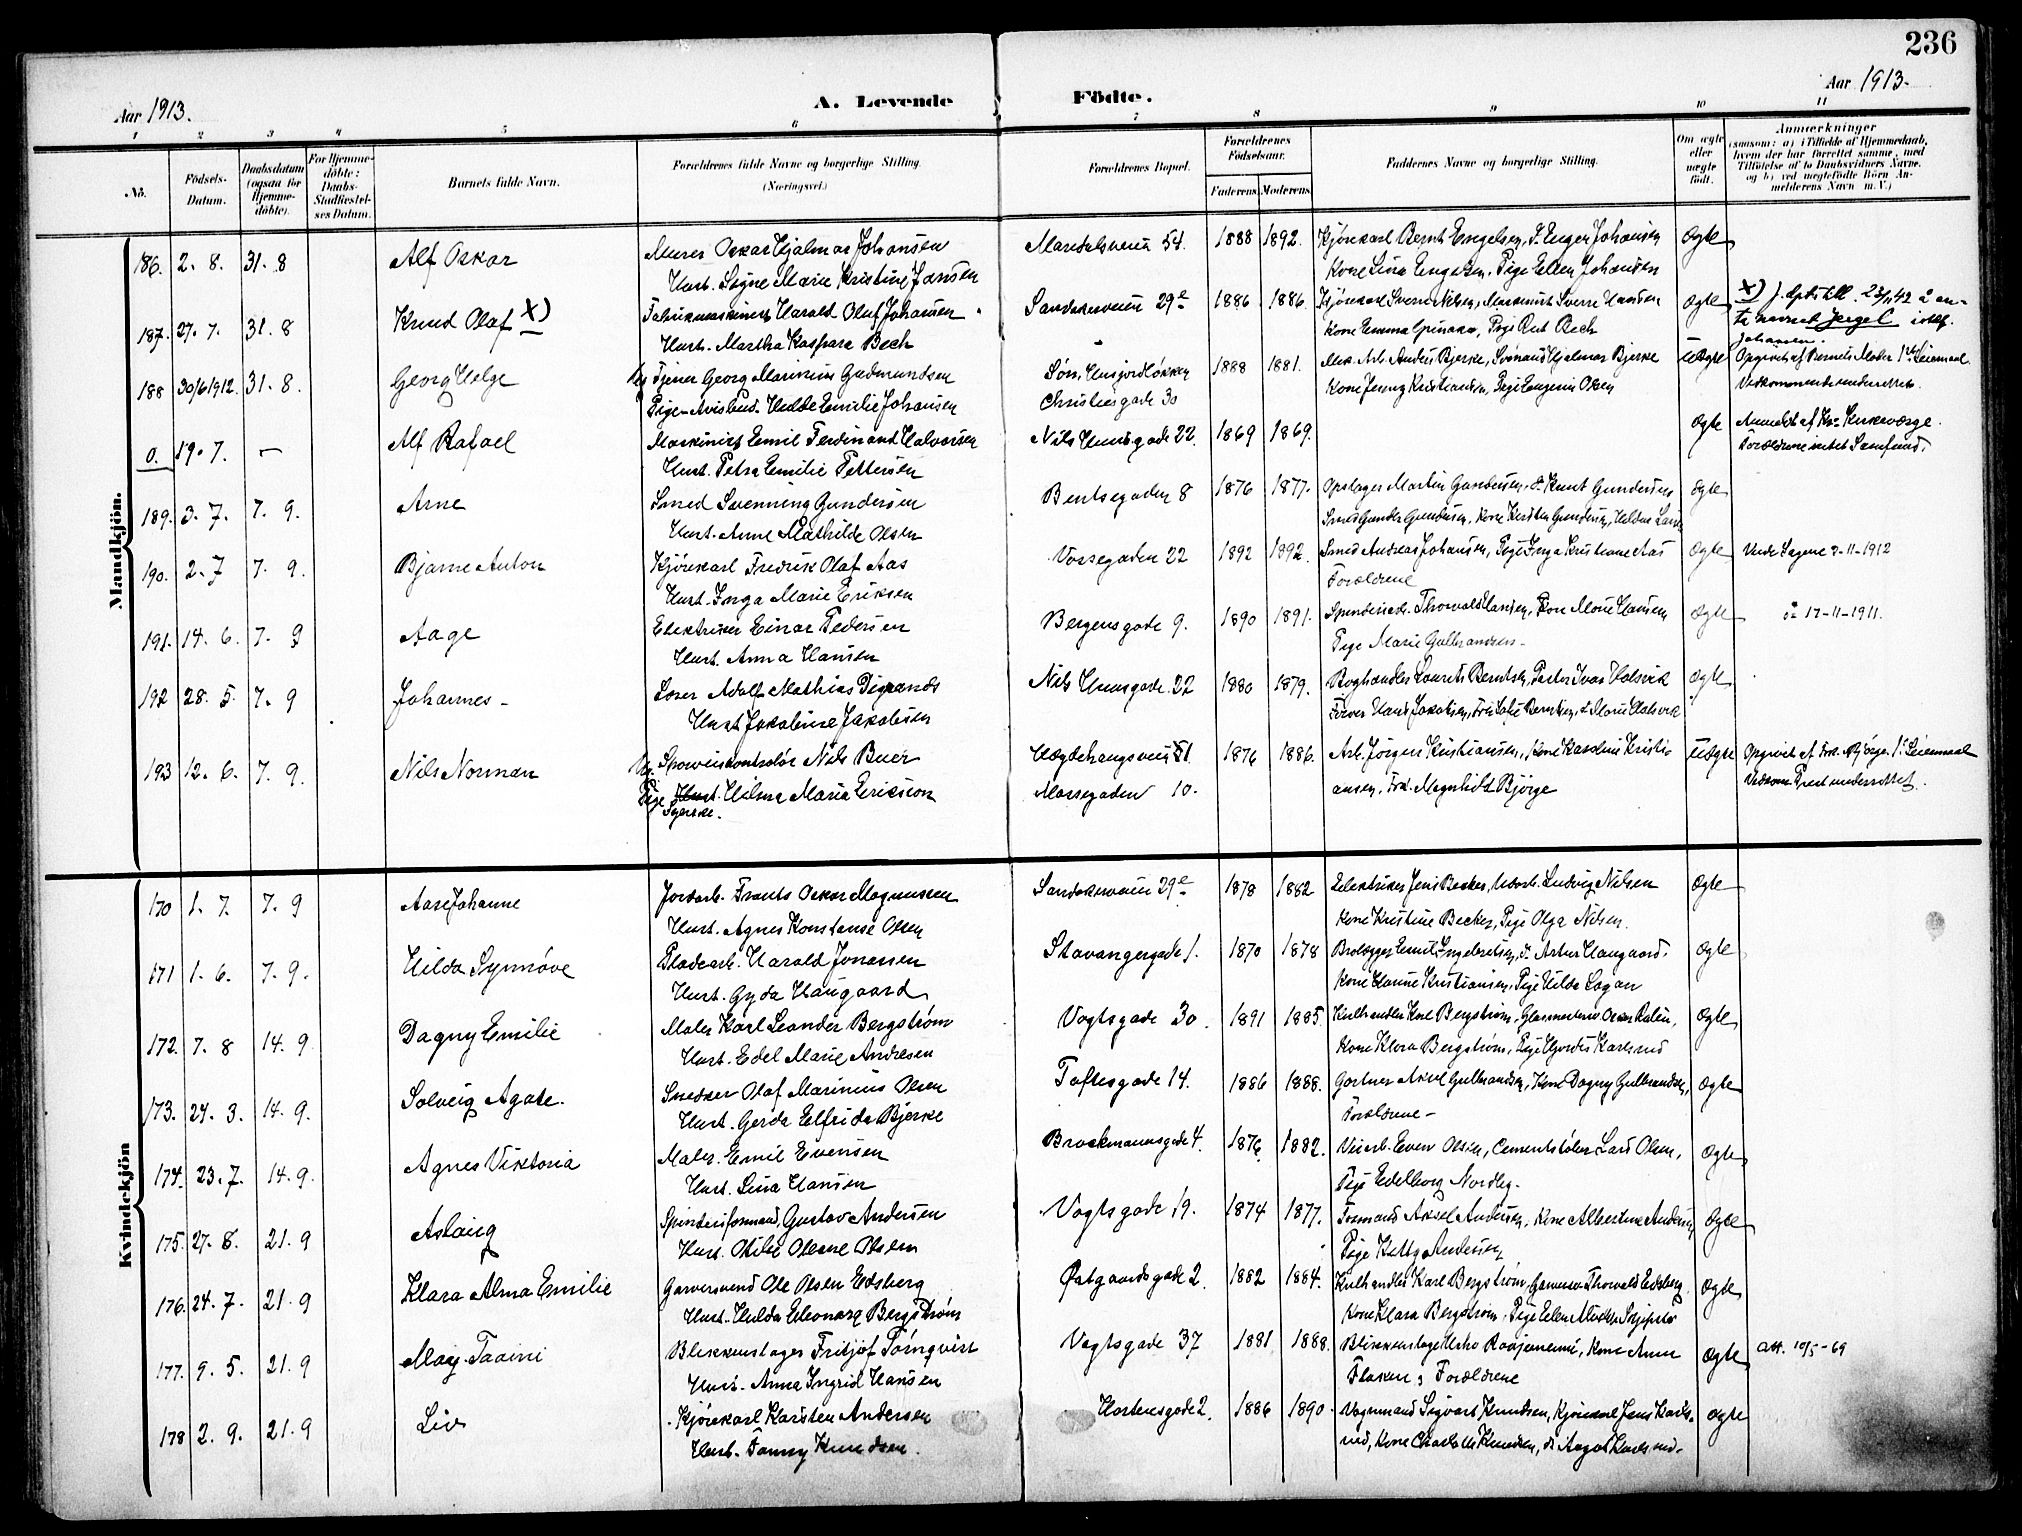 236
Aar 1913.
A. Levende Födte.
Aar 1913.
1 2 3 4 5 6 7 8 9 10 11
No.
Födsels-Datum.
Daabsdatum (ogsaa for Hjemmedöbte).
For Hjemmedöbte: Daabs-Stadfæstelses Datum.
Barnets fulde Navn.
Forældrenes fulde Navne og borgerlige Stilling. (Næringsvei.)
Forældrenes Bopæl.
Forældrenes Födselsaar.
Faderens. Moderens.
Faddernes Navne og borgerlige Stilling.
Om ægte eller uægte födt.
Anmærkninger (saasom: a) i Tilfælde af Hjemmedaab, hvem der har forrettet samme, med Tilföielse af to Daabsvidners Navne. og b) ved uægtefödte Börn Anmelderens Navn m. V.)
Mandkjön.
186. 2. 8. 31. 8 Alf Oskar Murer Oskar Hjalmar Johansen Maridalsveien 54. 1888 1892. Kjørekarl Bernt Engelsen, Do Enger Johansen Ægte
Hust. Signe Marie Kristine Jansen Kone Lina Engelsen, Pige Ellen Johansen
187. 27. 7. 31. 8 Knud Olaf X) Fabrikmaskinist Harald Oluf Johansen Sandakerveien 29e 1886 1886 Kjørekarl Sverre Nilsen, Maskinist Sverre Hansen Ægte X) J. dpts till. 23/1 42 å an-
Hust. Martha Kaspara Bech Kone Emma Spinaker, Pige Rut Bech ta navnet Jergel istf. Johansen.
188 30/6 1912 31. 8. Georg Helge Ug. Tjener Georg Marinius Gudmundsen Søn, Husjordløkken 1888 1881. Mek. Arb. Anders Bjerke, Svend Hjalmar Bjerke Uægte Opgivet af Barnets Moder 1ste Leiermaal
Pige-Avisbud. Hulda Emilie Johansen Christiesgade 30 Kone Jenny Kristiansen, Pige Eugenie Olsen Vedkommende underrettet.
0. 19. 7. — Alf Rafael Maskinist Emil Ferdinand Halvorsen Nils Huusgade 22. 1869 1869. Ægte Anmeldt af Kr. Kirkeværge.
Hust. Petra Emilie Pettersen Forældrene intet Samfund.
189. 3. 7. 7. 9. Arne Smed Svenning Gundersen Bentsegaden 8 1876 1877. Opslager Martin Gundersen, Do Knut Gundersen Ægte
Hust. Anne Mathilde Olsen Smed Gunder Gundersen, Kone Kirsten Gundersen, Heldine
190. 2. 7 7. 9. Bjarne Anton Kjørekarl Fredrik Olaf Aas Vossegaden 22 1892 1892. Smed Andreas Johansen, Pige Inga Kristiane Aas Ægte Viede Sagene 2-11-1912
Hust. Inga Marie Eriksen Forældrene
191. 14. 6. 7. 9 Aage Elektriker Einar Pedersen Bergensgade 9. 1890 1891. Spinderiarb. Thorvald Hansen, Kone Marie Hansen Ægte Do 17-11-1911.
Hust. Anna Hansen Pige Marie Gulbrandsen
192 28. 5. 7. 9 Johannes Lærer Adolf Mathias Digrands Nils Huusgade. 22 1880 1879. Boghandler Laurits Berntsen, Pastor Ivar Halsvik Ægte
Hust Jakobine Jakobsen Farver Hans Jakobsen, Frk Sofie Berntsen, Do Marie Halsvik
193 12. 6. 7. 9. Nils Norman Ug. Sporveiskontrolør Nils Buer Hægdehaugsveien 51. 1876 1886. Arb. Jørgen Kristiansen, Kone Karoline Kristi- Uægte Opgivet af Frk. Bjørge. 1ste Leiermaal
Pige Hust. Hilma Maria Erikson Mossegaden 10. ansen, Frk. Magnhild Bjørge Vedkom Prest underrettet.
Syerske.
Kvindekjön
170 1. 7. 7. 9 Aase Johanne Jordarb. Frants Oskar Magnussen Sandakerveien 29e 1878 1882 Elektriker Jens Becker, Murarb. Ludvig Nilsen Ægte
Hust. Agnes Konstanse Olsen Kone Kristine Becker, Pige Olga Nilsen.
171 1. 6. 7. 9. Hilda Synnøve Pladearb. Harald Jonassen Stavangergade 1. 1870 1878 Brolegger Emil Ingebretsen, Do Artur Haugaard. Ægte
Hust. Gyda Haugaard Kone Hanne Kristiansen, Pige Hilda Lagan
172. 7. 8 14. 9 Dagny Emilie Maler Karl Leander Bergstrøm Vogtsgade 30. 1891 1885 Kulhandler Karl Bergstrøm, Glasmester Oskar Kalin, Ægte
Hust. Edel Marie Andresen Kone Klara Bergstrøm, Pige Hjørdis Karlsrud
173. 24. 3. 14. 9. Solveig Agate. Snedker Olaf Marinius Olsen Toftesgade 14. 1886 1888. Gartner Aksel Gulbrandsen, Kone Dagny Gulbrandsen, Ægte
Hust. Gerda Elfrida Bjerke Forældrene
174. 23. 7. 14. 9. Agnes Viktoria Maler. Emil Evensen Brockmannsgade 4. 1876 1882. Veiarb. Even Olsen, Cementstøber Lars Olsen, Ægte
Hust. Lina Hansen Pige Edelborg Nordby.
175. 27. 8. 21. 9 Aslaug Spinderiformand, Gustav Andersen Vogtsgade 19. 1874 1877. Formand Aksel Andersen, Kone Albertine Andersen, Ægte
Hust. Otilie Olsen Pige Ketty Andersen
176. 24. 7. 21. 9 Klara Alma Emilie Garversvend Ole Olsen Edsberg Østgaardsgade 2. 1882 1884. Kulhandler Karl Bergstrøm, Garversv. Thorvald Edsberg Ægte
Hust. Hulda Eleonora Bergstrøm Kone Klara Bergstrøm, Pige Ellen
177. 9. 5. 21. 9 May Taaini Blikkenslager Fritjof Törnqvist Vogtsgade 37 1881 1888. Blikkenslager Kone Anna Ægte Att. 10/5-69
Hust. Anna Ingrid Hansen Forældrene
178 2. 9. 21. 9 Liv Kjørekarl Karsten Andersen Hortensgade 2. 1886 1890. Vognmand Sigvart Knudsen, Kjørekarl Jens Karls- Ægte
Hust. Fanny Knudsen. rud, Kone Charlotte Knudsen, Do Aagot Karlsrud.